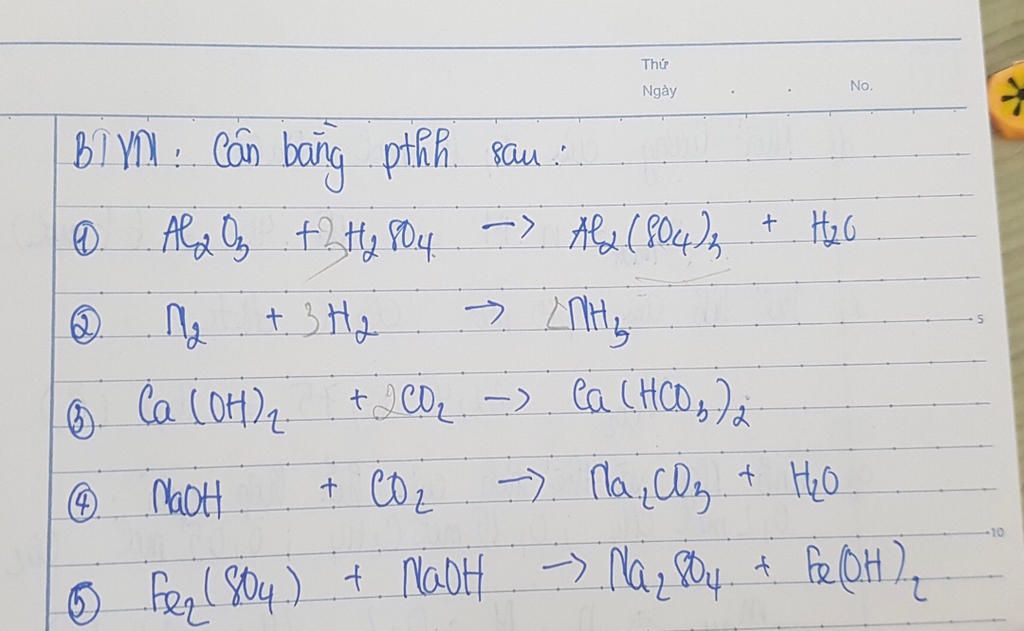 Thứ
Ngày . . No.
BTVN: Cân bằng pthh sau:
① Al2O3 + 3H2SO4 → Al2(SO4)3 + H2O
② N2 + 3H2 → 2NH3
5
③ Ca(OH)2 + 2CO2 → Ca(HCO3)2
④ NaOH + CO2 → Na2CO3 + H2O
10
⑤ Fe2(SO4) + NaOH → Na2SO4 + Fe(OH)2